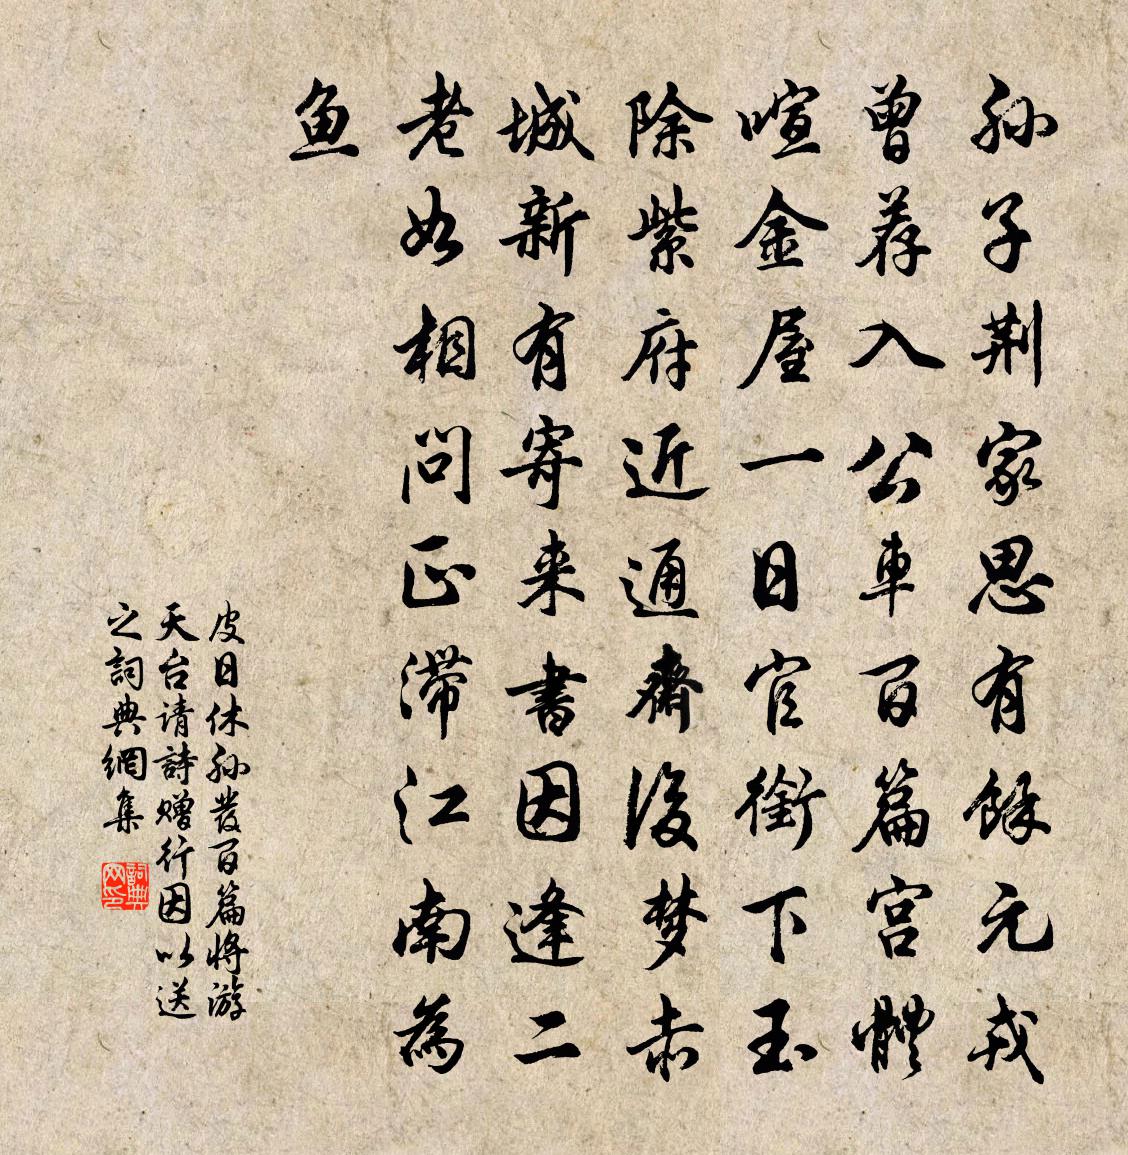 孙子荆家思有餘元戎
曾荐入公車百篇宫體
喧金屋一日官銜下玉
除紫府近通齋後梦赤
城新有寄来書因逢二
老如相問正滞江南為
鱼
皮日休孙發百篇将游
天台请詩赠行因以送
之詞典網集
詞典
网印